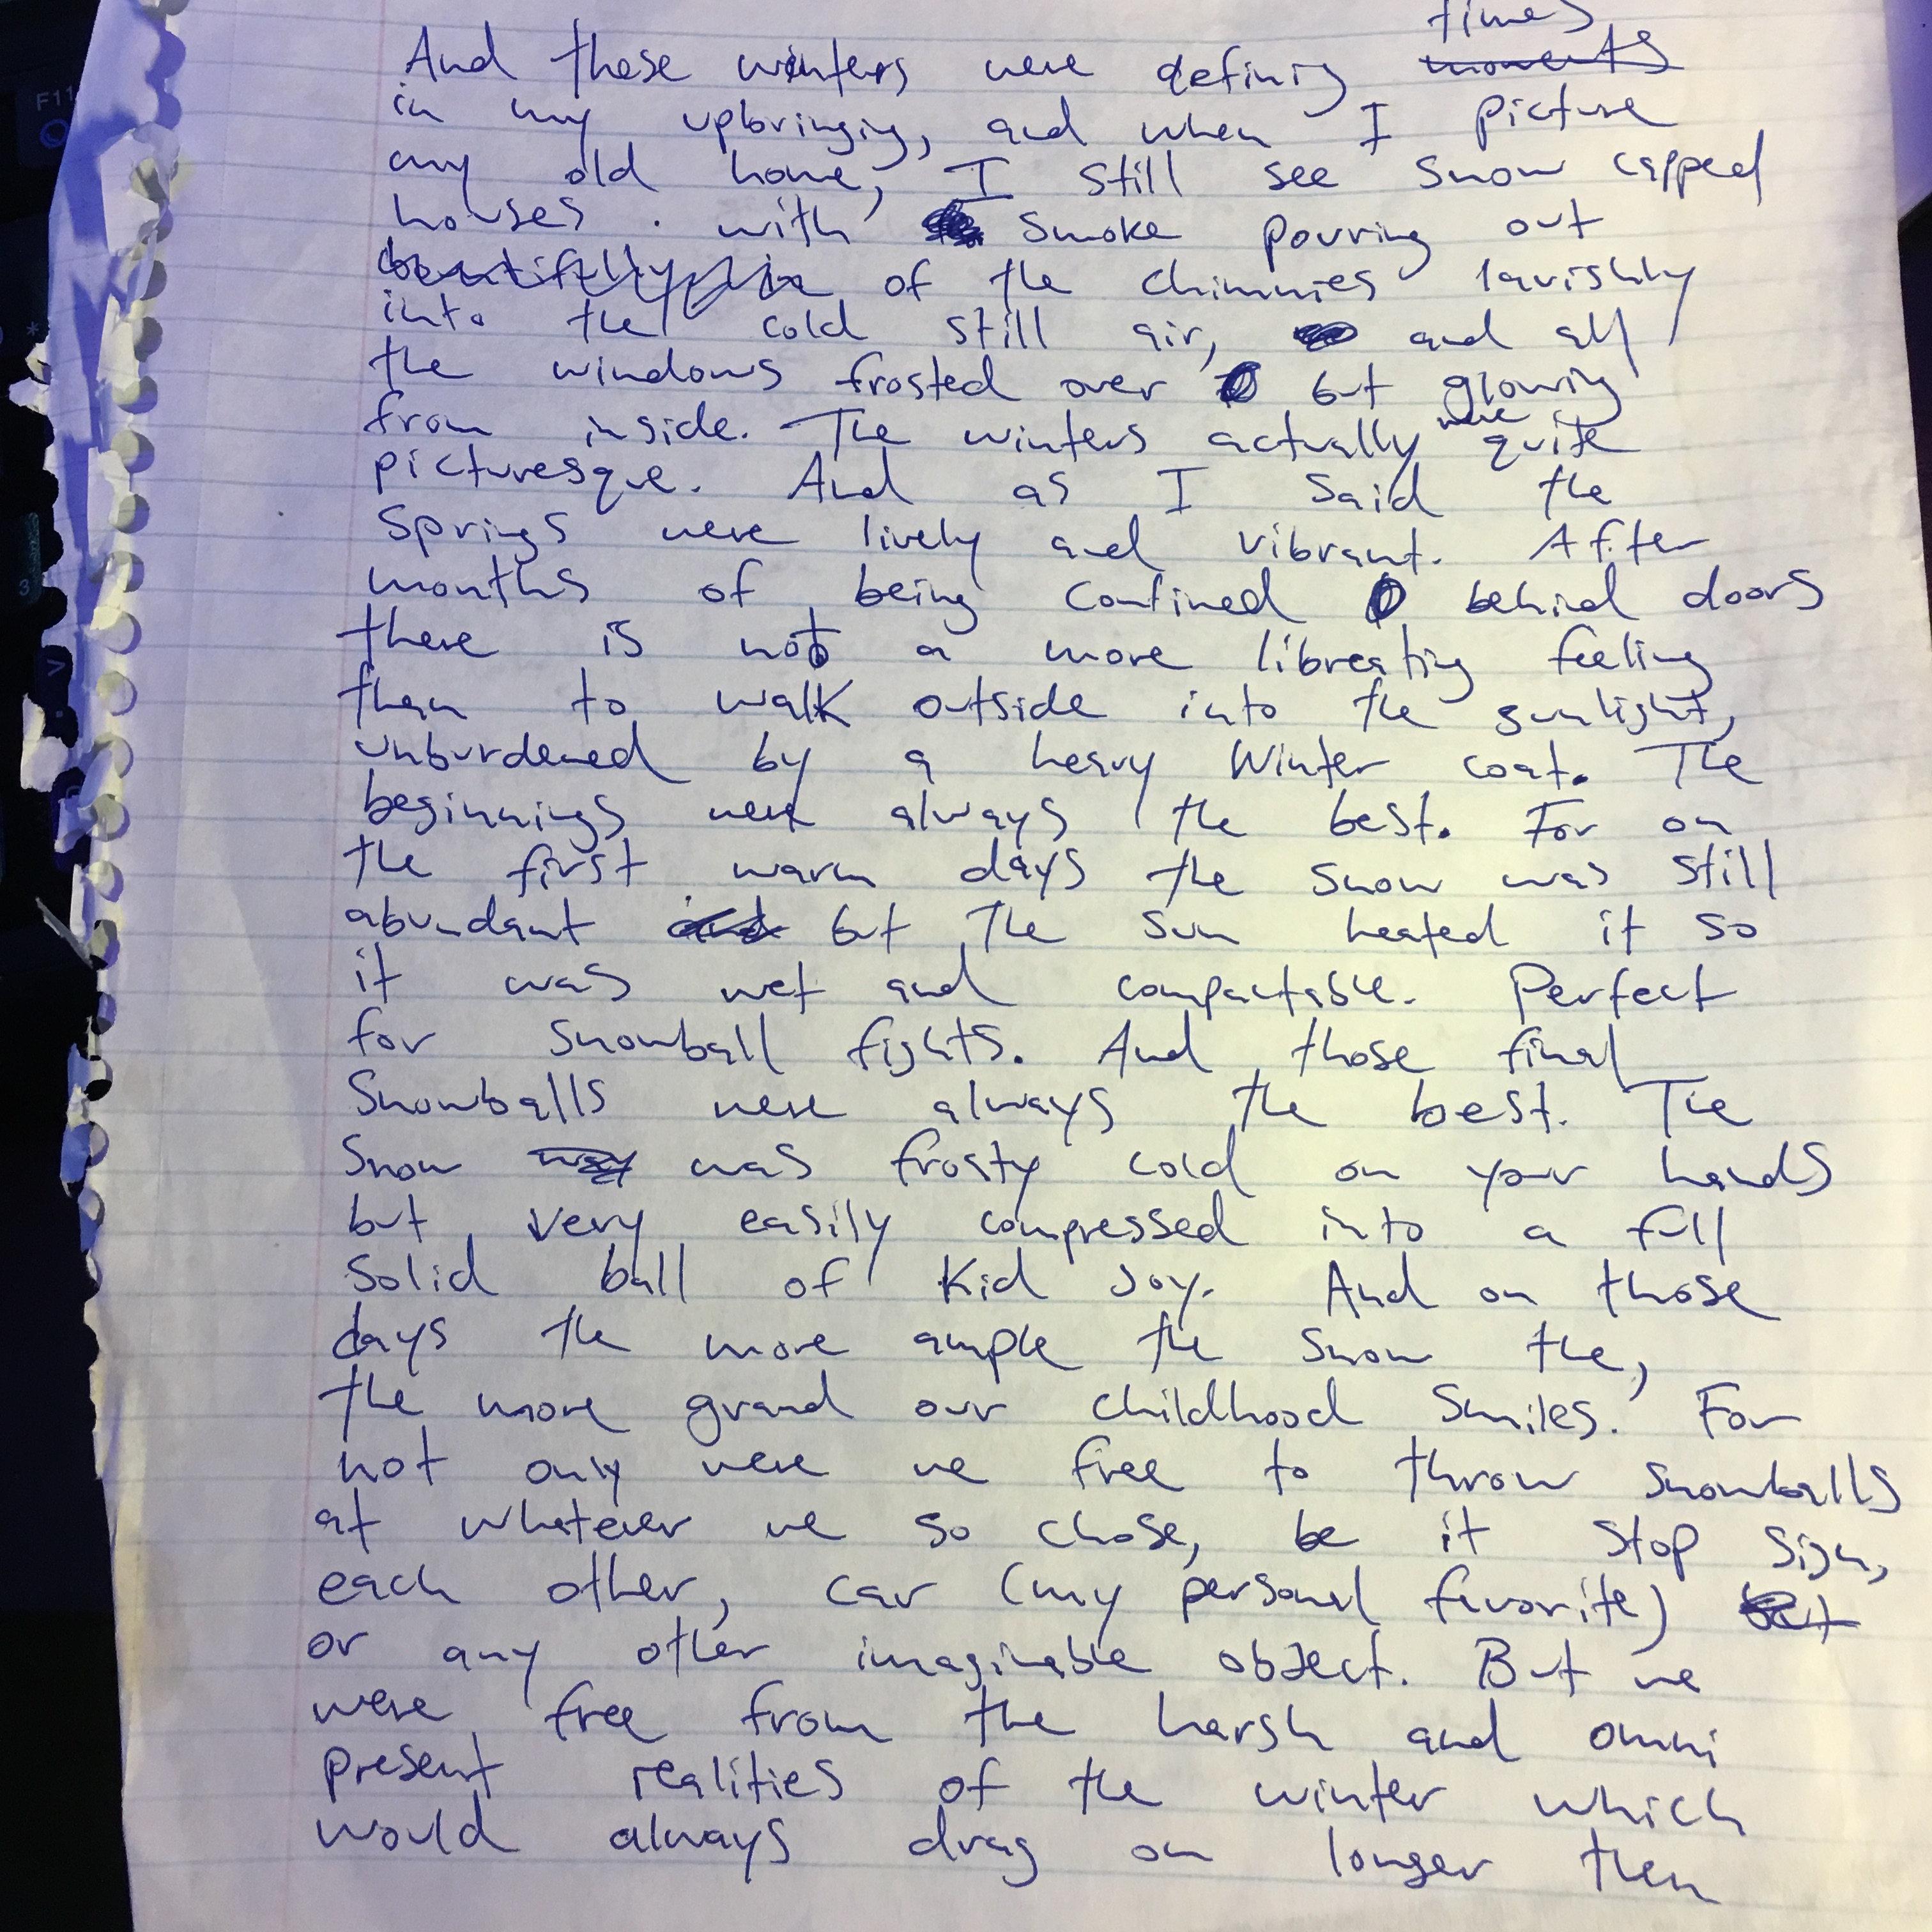 times
And these winters were defining moments
in my upbringing, and when I picture
my old home, I still see snow capped
houses. with smoke pouring out
beautifully in of the chimnies lavishly
into the cold still air, and all
the windows frosted over but glowing
from inside. The winters actually were quite
picturesque. And as I said the
springs were lively and vibrant. After
months of being confined behind doors
there is not a more libreating feeling
than to walk outside into the sunlight,
unburdened by a heavy winter coat. The
beginnings were always the best. For on
the first warm days the snow was still
abundant and but the sun heated it so
it was wet and compactable. Perfect
for snowball fights. And those final
snowballs were always the best. The
snow way was frosty cold on your hands
but very easily compressed into a full
solid ball of kid joy. And on those
days the more ample the snow the,
the more grand our childhood smiles. For
not only were we free to throw snowballs
at whatever we so chose, be it stop sign,
each other, car (my personal favorite) but
or any other imaginable object. But we
were free from the harsh and omni
present realities of the winter which
would always drag on longer then
F11
3